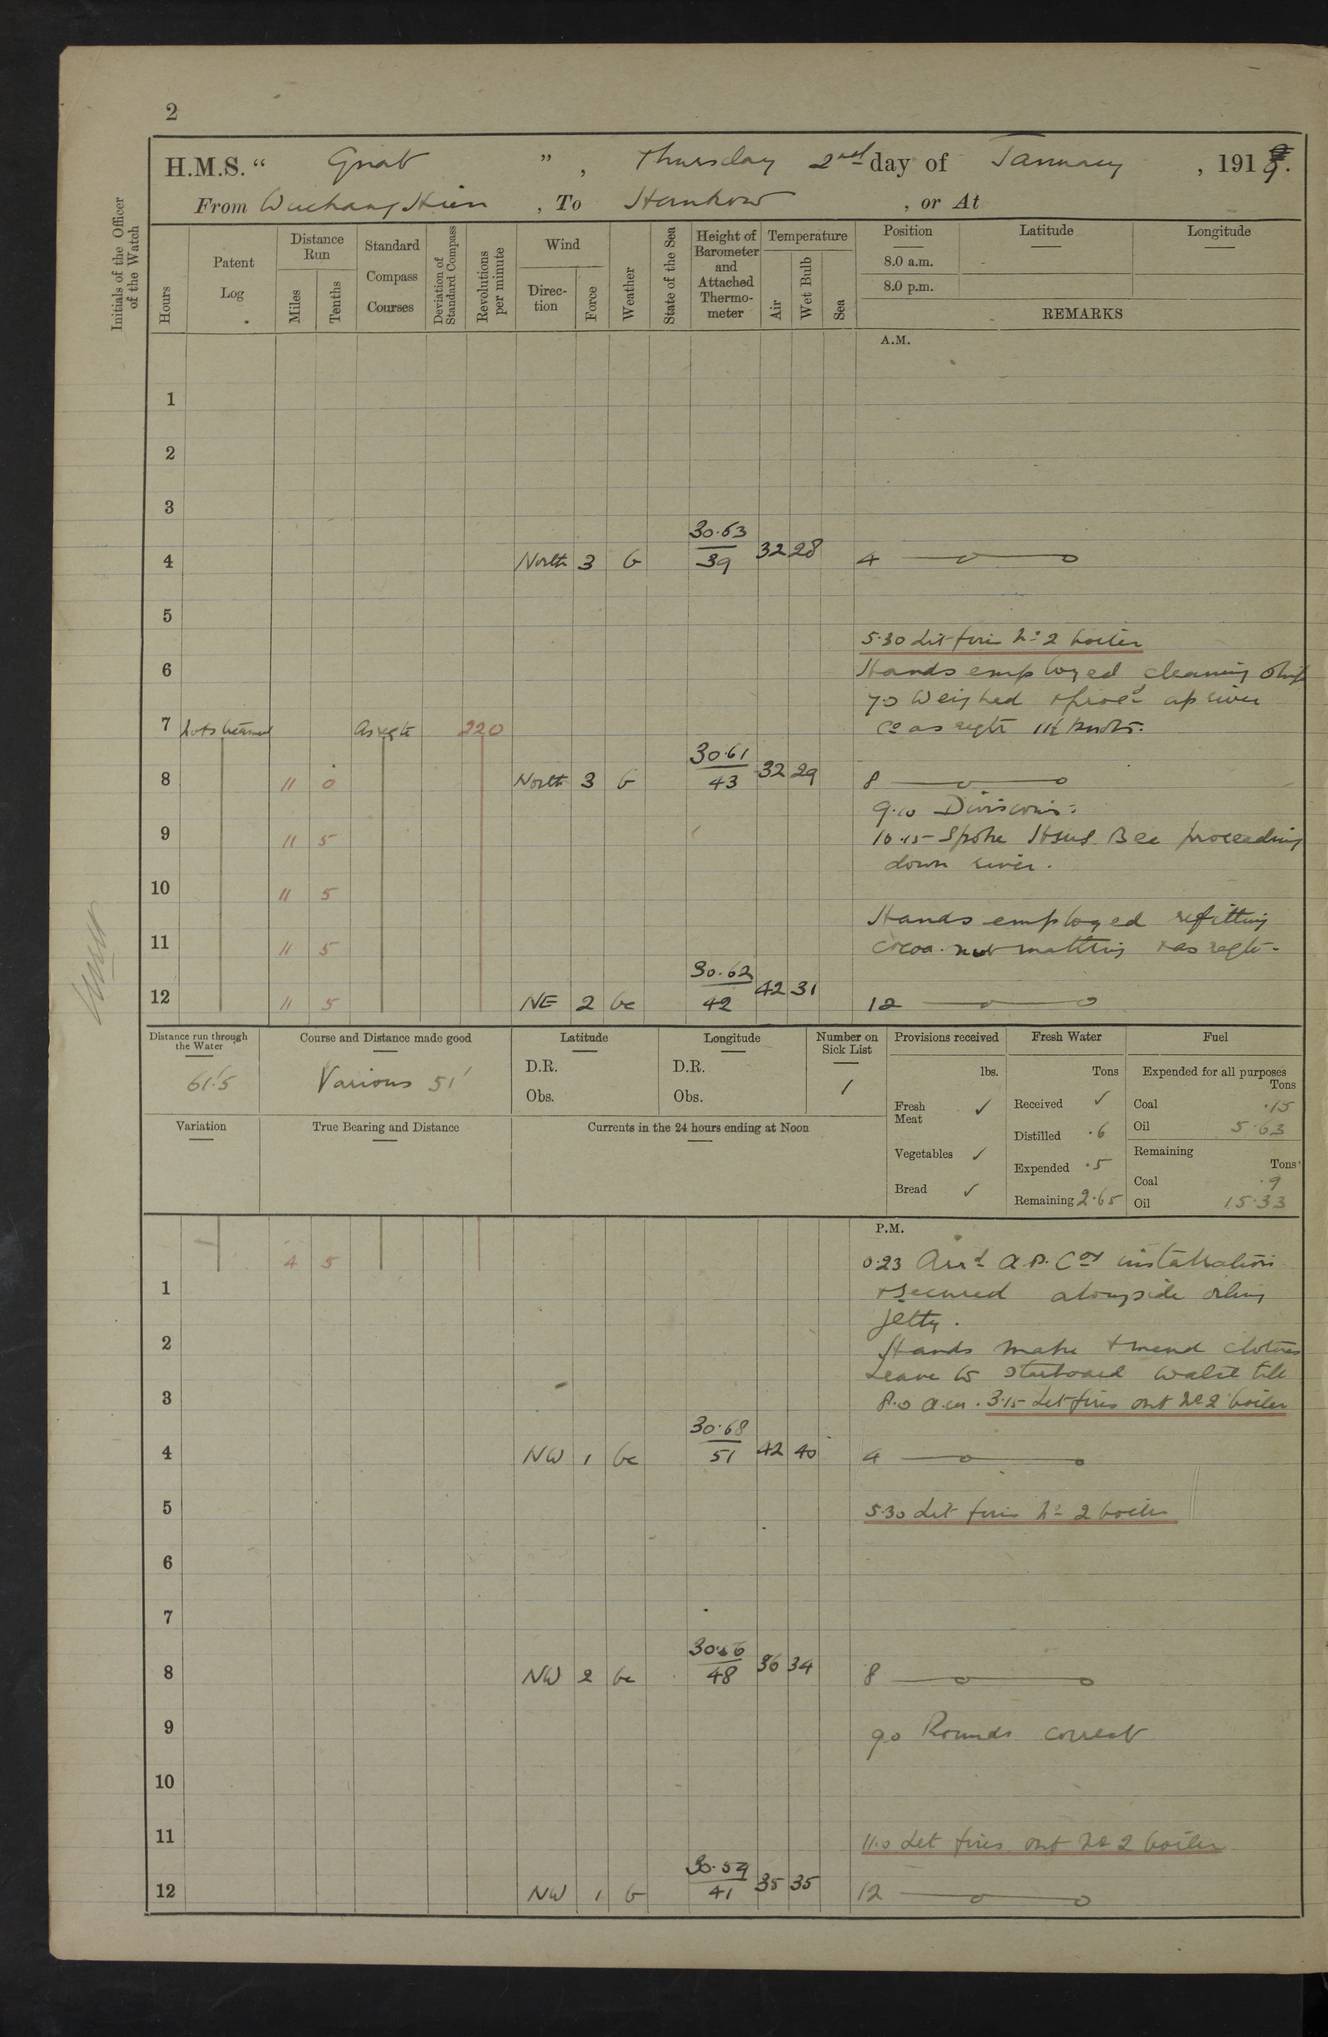 2
H.M.S. “ Gnat ”, Thursday 2nd day of January, 1919.
From Wuchang Hien, To Hankow, or At
Initials of the Officer of the Watch
Hours
Patent Log
Distance Run
Miles
Tenths
Standard Compass Courses
Deviation of Standard Compass
Revolutions per minute
Wind
Direction
Force
Weather
State of the Sea
Height of Barometer and Attached Thermometer
Temperature
Air
Wet Bulb
Sea
Position
Latitude
Longitude
8.0 a.m.
8.0 p.m.
REMARKS
A.M.
1
2
3
4 North 3 b 30.63 39 32 28 4
5
5.30 Lit fires No 2 boiler
6 Hands employed cleaning ship
7.0 Weighed & procd up river
7 Not streamed As reqte 220 Co as reqte 11½ knots.
8 11 0 North 3 b 30.61 43 32 29 8
9.10 Divisions.
9 11 5 10.15 Spoke HMS Bee proceeding
down river.
10 11 5
Hands employed refitting
11 11 5 cocoa-nut matting & as reqte.
12 11 5 NE 2 bc 30.62 42 42 31 12
Distance run through the Water
61.5
Course and Distance made good
Various 51'
Latitude
D.R.
Obs.
Longitude
D.R.
Obs.
Number on Sick List
1
Provisions received
lbs.
Fresh Meat ✓
Vegetables ✓
Bread ✓
Fresh Water
Tons
Received ✓
Distilled .6
Expended .5
Remaining 2.65
Fuel
Expended for all purposes
Tons
Coal .15
Oil 5.63
Remaining
Tons
Coal .9
Oil 15.33
Variation
True Bearing and Distance
Currents in the 24 hours ending at Noon
P.M.
4 5 0.23 Arrd A.P. Coys installation
1 & secured alongside oiling
jetty.
2 Hands make & mend clothes
Leave to starboard watch till
3 8.0 a.m. 3.15 Let fires out No 2 boiler
4 NW 1 bc 30.68 51 42 40 4
5 5.30 Lit fires No 2 boiler
6
7
8 NW 2 bc 48 36 34 8
9 9.0 Rounds correct
10
11 11.0 Let fires out No 2 boiler
12 NW 1 b 30.59 41 35 35 12